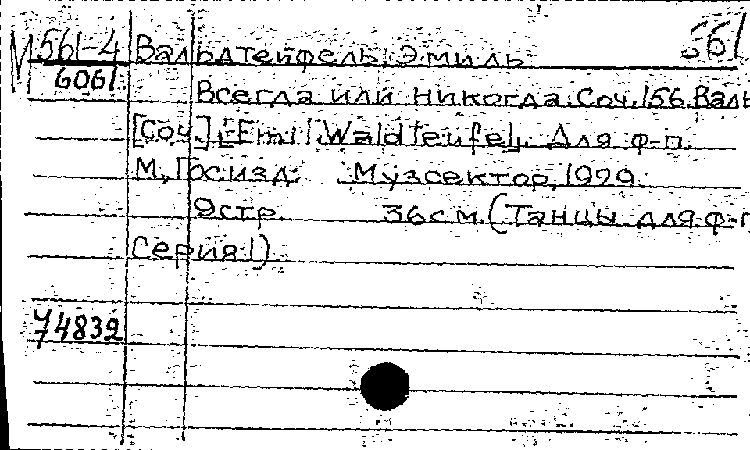 М 561-4 Вальдтейфель, Эмиль 561
6061
Всегда или никогда. Соч. 156. Валь
[Соч.] Emil Waldteufel. Для ф-п.
М, Госизд. Музсектор, 1929.
9стр. 36см. (Танцы для ф-п
серия 1)
74832